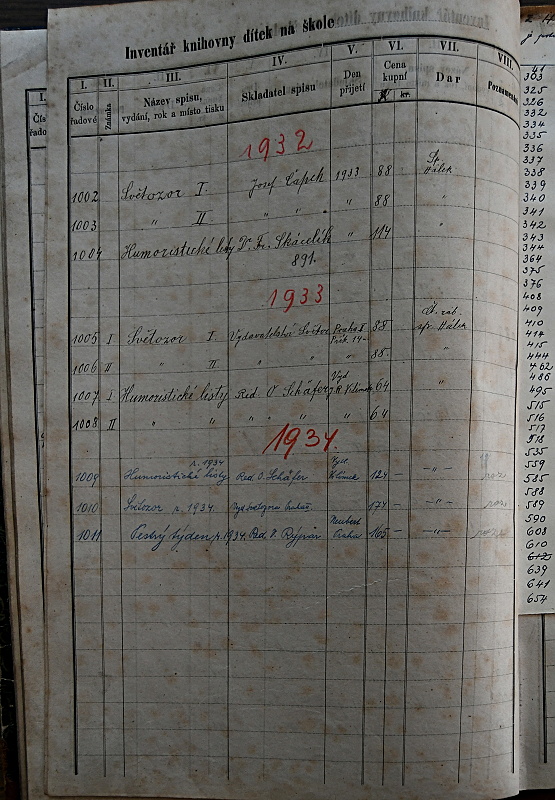 Inventář knihovny dítek na škole
I. II. III. IV. V. VI. VII. VIII.
Číslo řadové
Známka
Název spisu, vydání, rok a místo tisku
Skladatel spisu
Den přijetí
Cena kupní
kr.
Dar
1932
1002 Světozor I. Josef Čapek 1933 88 Sp. Hálek
1003 " II " " " 88 "
1004 Humoristické listy Dr. Fr. Skácelík " 114 "
891.
1933
1005 I Světozor I. Vydavatelství Světozor Praha II 88
spr. Hálek
1006 II " II " " 88 "
1007 I Humoristické listy Red. O Schäfer Vyd. J. R. Vilímek 64 "
1008 II " " " " " 64
1934.
1009 Humoristické listy r. 1934 Red. O. Schäfer Vyd. Vilímek 124 – – " –
1010 Světozor r. 1934. 174 – – " –
1011 Pestrý týden r. 1934. Red. Neubert Praha 165 – – " –
303
325
326
332
334
335
336
337
338
339
340
341
342
343
344
364
375
376
408
409
410
414
415
444
462
486
495
515
516
517
518
535
559
585
588
589
590
608
610
612
639
641
654